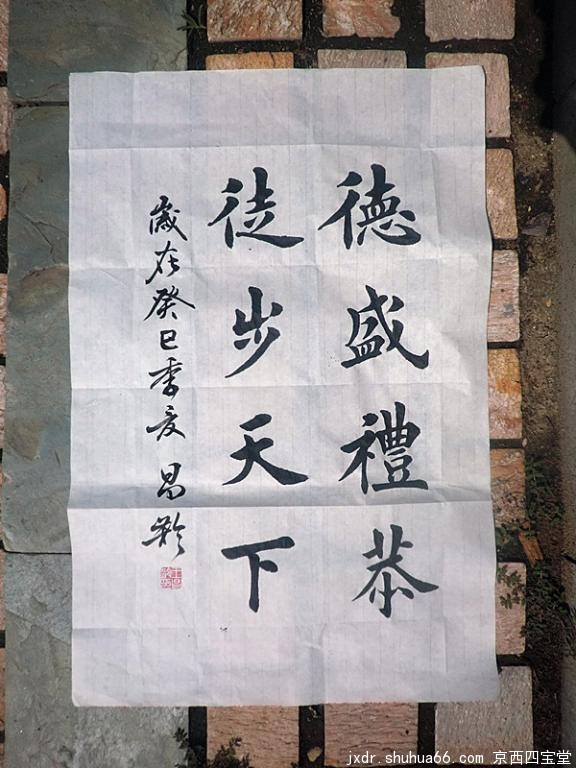 德盛禮恭
徒步天下
歲在癸巳季夏 昌齡
jxdr.shuhua66.com 京西四宝堂